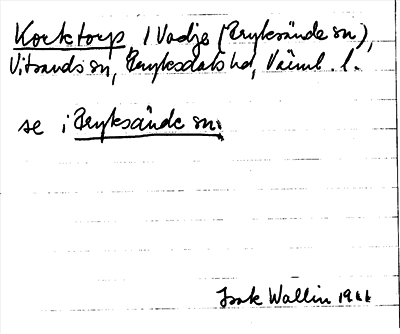 Korktorp, i Vadje (Fryksände sn),
Vitsands sn, Fryksdals hd, Värml. l.
se i Fryksände sn.
Isak Wallin 1944